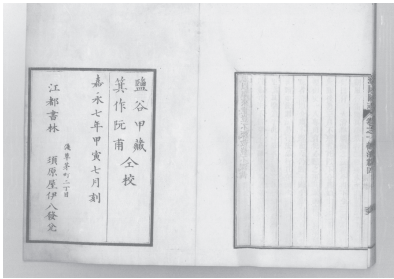 鹽谷甲藏
箕作阮甫 仝校
嘉永七年甲寅七月刻
淺草茅町二丁目
江都書林 須原屋伊八發兌